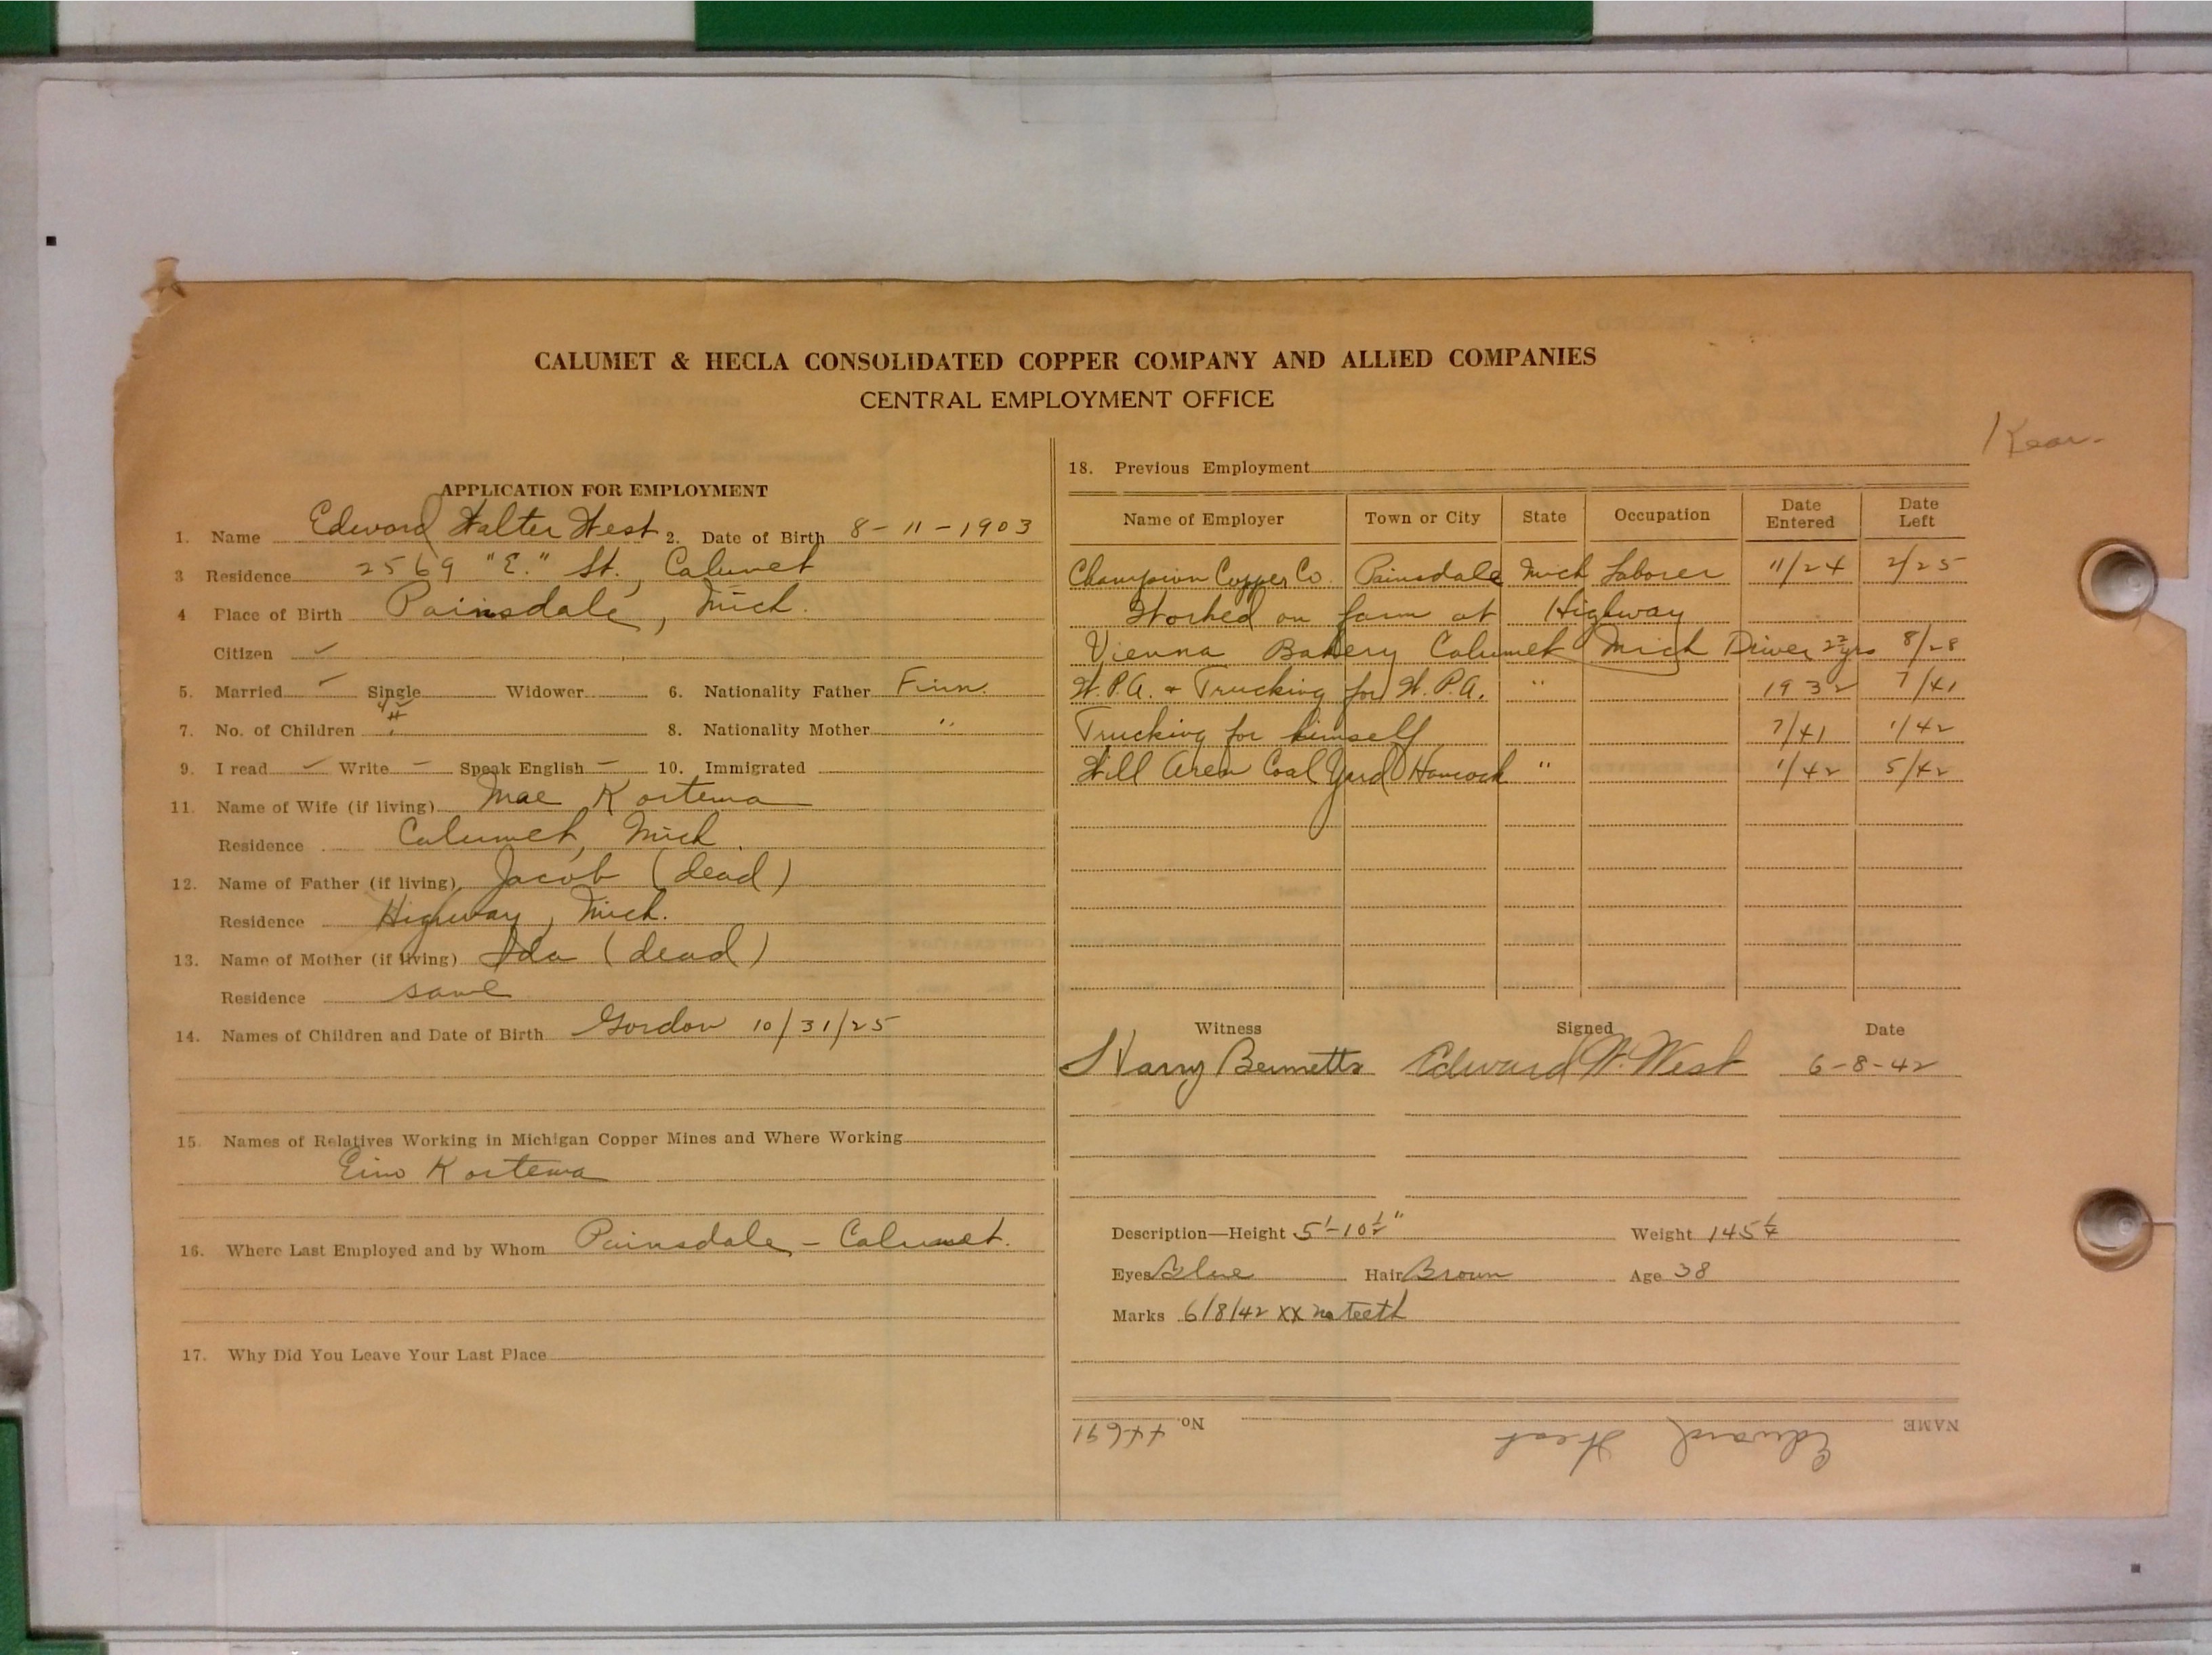 CALUMET & HECLA CONSOLIDATED COPPER COMPANY AND ALLIED COMPANIES
CENTRAL EMPLOYMENT OFFICE
Kear.
APPLICATION FOR EMPLOYMENT
1. Name Edward Walter West 2. Date of Birth 8-11-1903
3 Residence 2569 "E." St., Calumet
4 Place of Birth Painsdale, Mich.
Citizen ✓
5. Married ✓ Single Widower 6. Nationality Father Finn.
7. No. of Children 8. Nationality Mother "
9. I read ✓ Write – Speak English – 10. Immigrated
11. Name of Wife (if living) Mae Kortema
Residence Calumet, Mich.
12. Name of Father (if living) Jacob (dead)
Residence Highway, Mich.
13. Name of Mother (if living) Ida (dead)
Residence same
14. Names of Children and Date of Birth Gordon 10/31/25
15. Names of Relatives Working in Michigan Copper Mines and Where Working
Eino Kortema
16. Where Last Employed and by Whom Painsdale - Calumet.
17. Why Did You Leave Your Last Place
18. Previous Employment
Name of Employer Town or City State Occupation Date Entered Date Left
Champion Copper Co. Painsdale Mich Laborer 11/24 2/25
Worked on farm at Highway
Vienna Bakery Calumet Mich Driver yrs 8/28
W.P.A. + Trucking for W.P.A. " 1932 7/41
Trucking for himself 7/41 1/42
Will Aren Coal Yard Hancock " 1/42 5/42
Witness Signed Date
Harry Bennetts Edward W. West 6-8-42
Description—Height 5'-10½" Weight 145¼
Eyes Blue Hair Brown Age 38
Marks 6/8/42 XX no teeth
NAME Edward West No. 44691